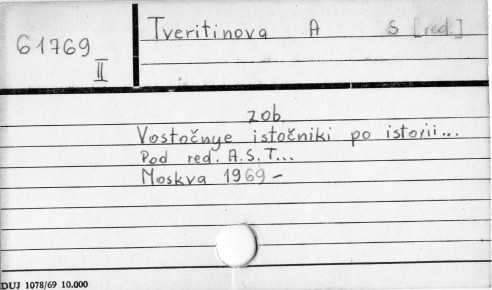 61769
II
Tveritinova A S [red.]
zob.
Vostočnye istočniki po istorii...
Pod red. A.S.T...
Moskva 1969-
DUJ 1078/69 10.000